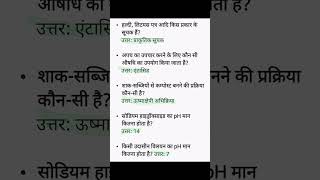 औषधि का उपयोग किया जाता है?
उत्तर: एंटासिड
शाक-सब्जि
की प्रक्रिया
कौन-सी है?
उत्तर: ऊष्मा
सोडियम हाइ
मान
कितना होता है?
• हल्दी, लिटमस पत्र आदि किस प्रकार के
सूचक हैं?
उत्तर: प्राकृतिक सूचक
• अपच का उपचार करने के लिए कौन सी
औषधि का उपयोग किया जाता है?
उत्तर: एंटासिड
• शाक-सब्जियों से कम्पोस्ट बनने की प्रक्रिया
कौन-सी है?
उत्तर: ऊष्माक्षेपी अभिक्रिया
• सोडियम हाइड्रॉक्साइड का pH मान
कितना होता है?
उत्तर: 14
• किसी उदासीन विलयन का pH मान
कितना होता है? उत्तर: 7